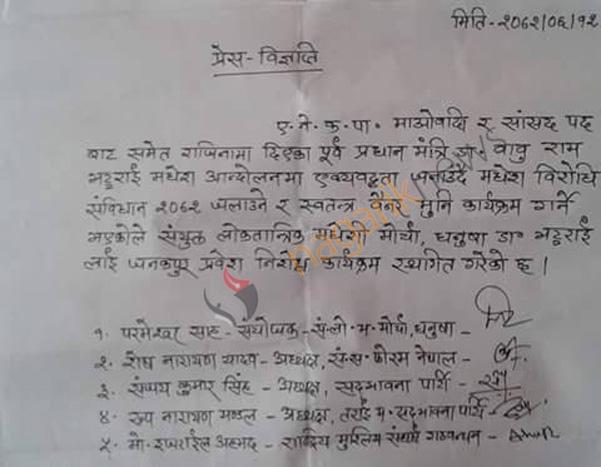 मिति - २०७२/०६/१२
प्रेस - विज्ञप्ति
ए. ने. क. पा. माओवादि र सांसद पद
बाट समेत राजिनामा दिएका पूर्व प्रधान मंत्रि डा० बाबु राम
भट्टराई मधेश आन्दोलनमा एक्यवद्धता जनाउँदै मधेश विरोधि
संविधान २०७२ जलाउने र स्वतन्त्र वेनर मुनि कार्यक्रम गर्ने
भएकोले संयुक्त लोकतान्त्रिक मधेशी मोर्चा, धनुषा डा० भट्टराई
लाई जनकपुर प्रवेश निषेध कार्यक्रम स्थगित गरेको छ ।
१. परमेश्वर साह - संयोजक - सं. लो. म. मोर्चा, धनुषा -
२. शेष नारायण यादव - अध्यक्ष, सं. स. फोरम नेपाल -
३. संजय कुमार सिंह - अध्यक्ष, सद्भावना पार्टि -
४. रूप नारायण मण्डल - अध्यक्ष, तराई म. सद्भावना पार्टि -
५. मो. इजराईल अहमद - राष्ट्रिय मुस्लिम संघर्ष गठवन्धन -